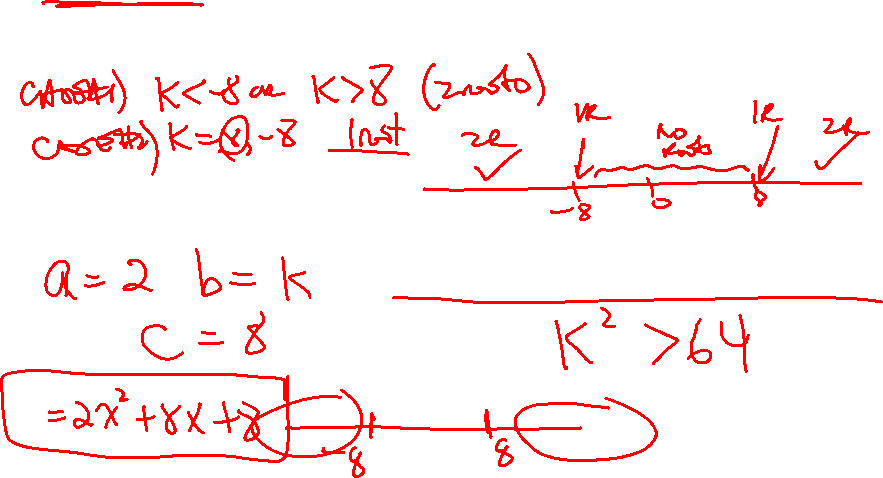 CASE#1) K<-8 or K>8 (2 roots)
CASE#2) K=8,-8 1 root
2R 1R no roots 1R 2R
-8 0 8
a=2 b=K
c=8
K²>64
=2x²+8x+8
-8 8